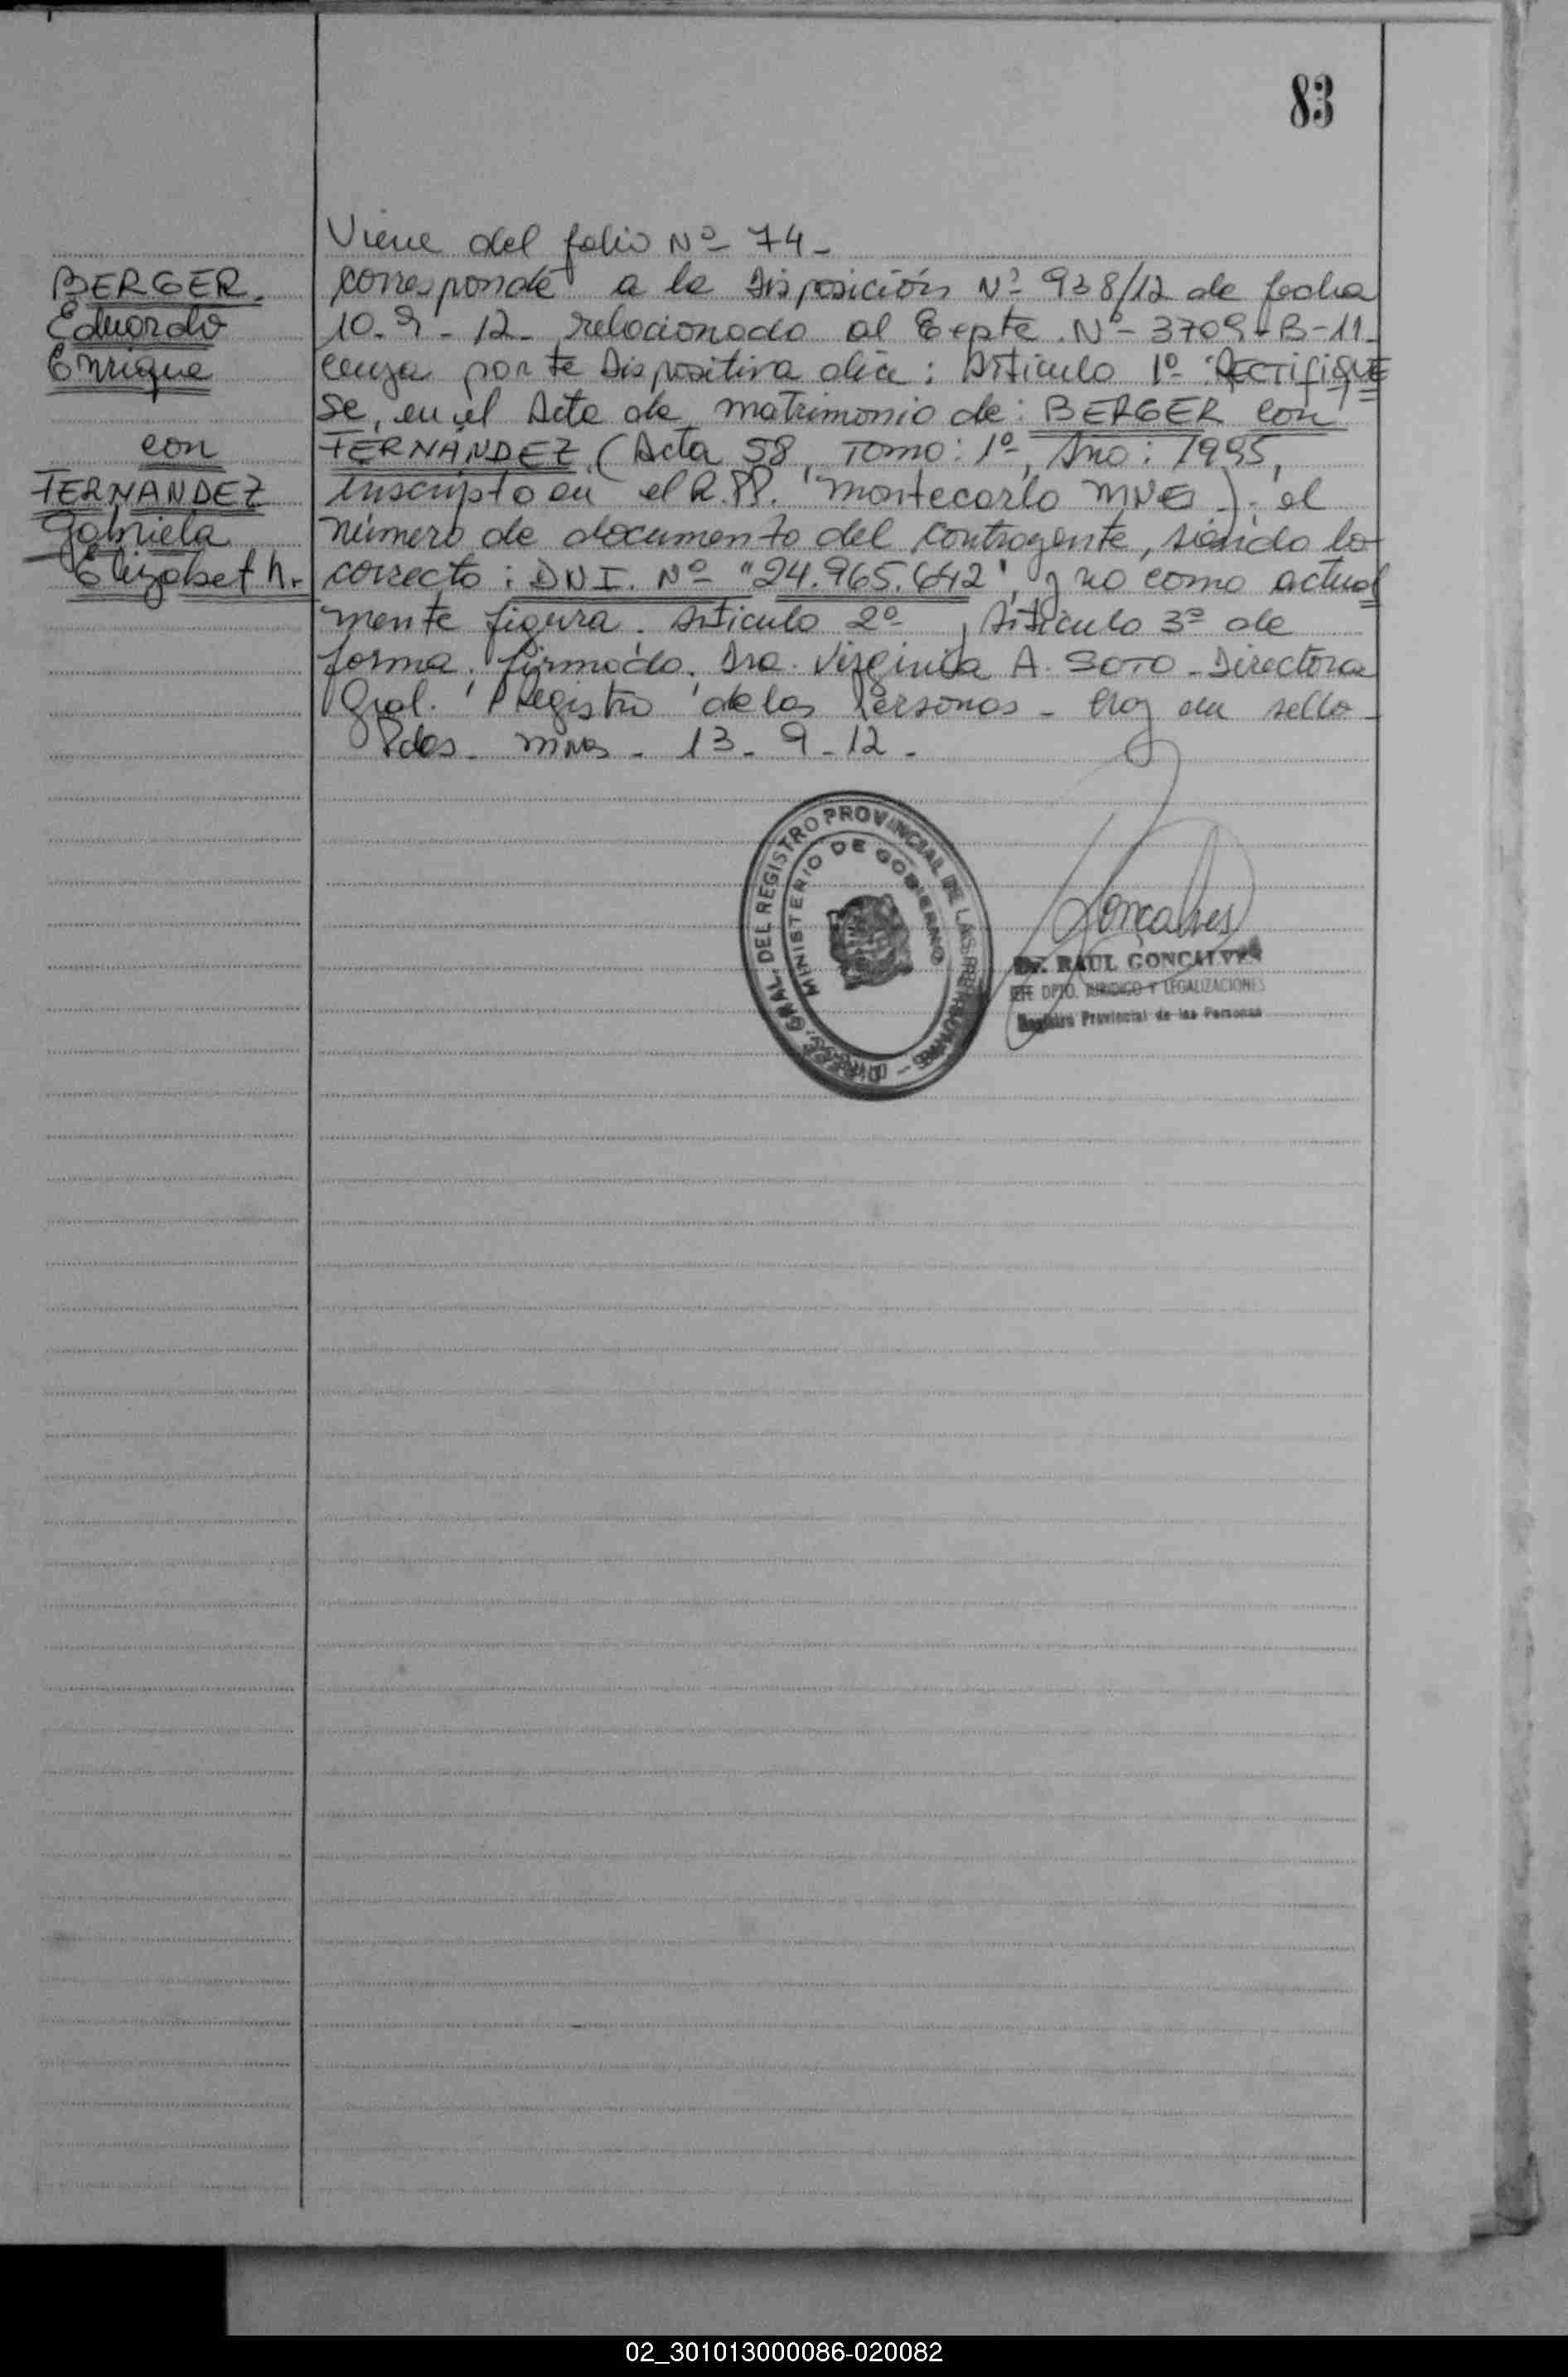 83
Viene del folio Nº 74-
BERGER.
Eduardo
Enrique
con
FERNANDEZ
Gabriela
Elizabeth.-
corresponde a la Disposición Nº 938/12 de fecha
10-9-12- relacionado al Expte. Nº- 3709-B-11-
cuya parte Dispositiva dice: Artículo 1º- RECTIFIQUE
se, en el Acta de matrimonio de: BERGER con
FERNÁNDEZ (Acta 58, Tomo: 1º, Año: 1995,
inscripto en el R.PP. Montecarlo MNES); el
número de documento del contrayente, siendo lo
correcto: DNI. Nº "24.965.642", y no como actual
mente figura. Artículo 2º, Artículo 3º de
forma. firmado. Dra. Virginia A. SOTO - Directora
Gral. Registro de las Personas - Hay un sello-
Pdas. Mnes - 13-9-12-
DIREC. GRAL. DEL REGISTRO PROVINCIAL DE LAS PERSONAS -
MINISTERIO DE GOBIERNO
Goncalves
Dr. RAUL GONCALVES
JEFE DPTO. JURIDICO Y LEGALIZACIONES
Registro Provincial de las Personas
02_301013000086-020082